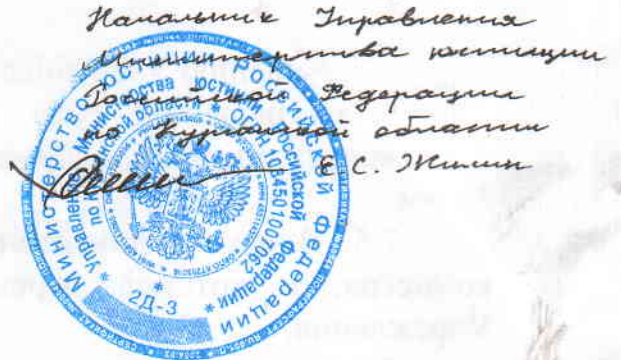 Начальник Управления
Министерства юстиции
Российской Федерации
по Курганской области
Е.С. Жилин
Министерство юстиции Российской Федерации
Управление Министерства юстиции Российской Федерации
по Курганской области
ОГРН 1084501007062
2Д-3